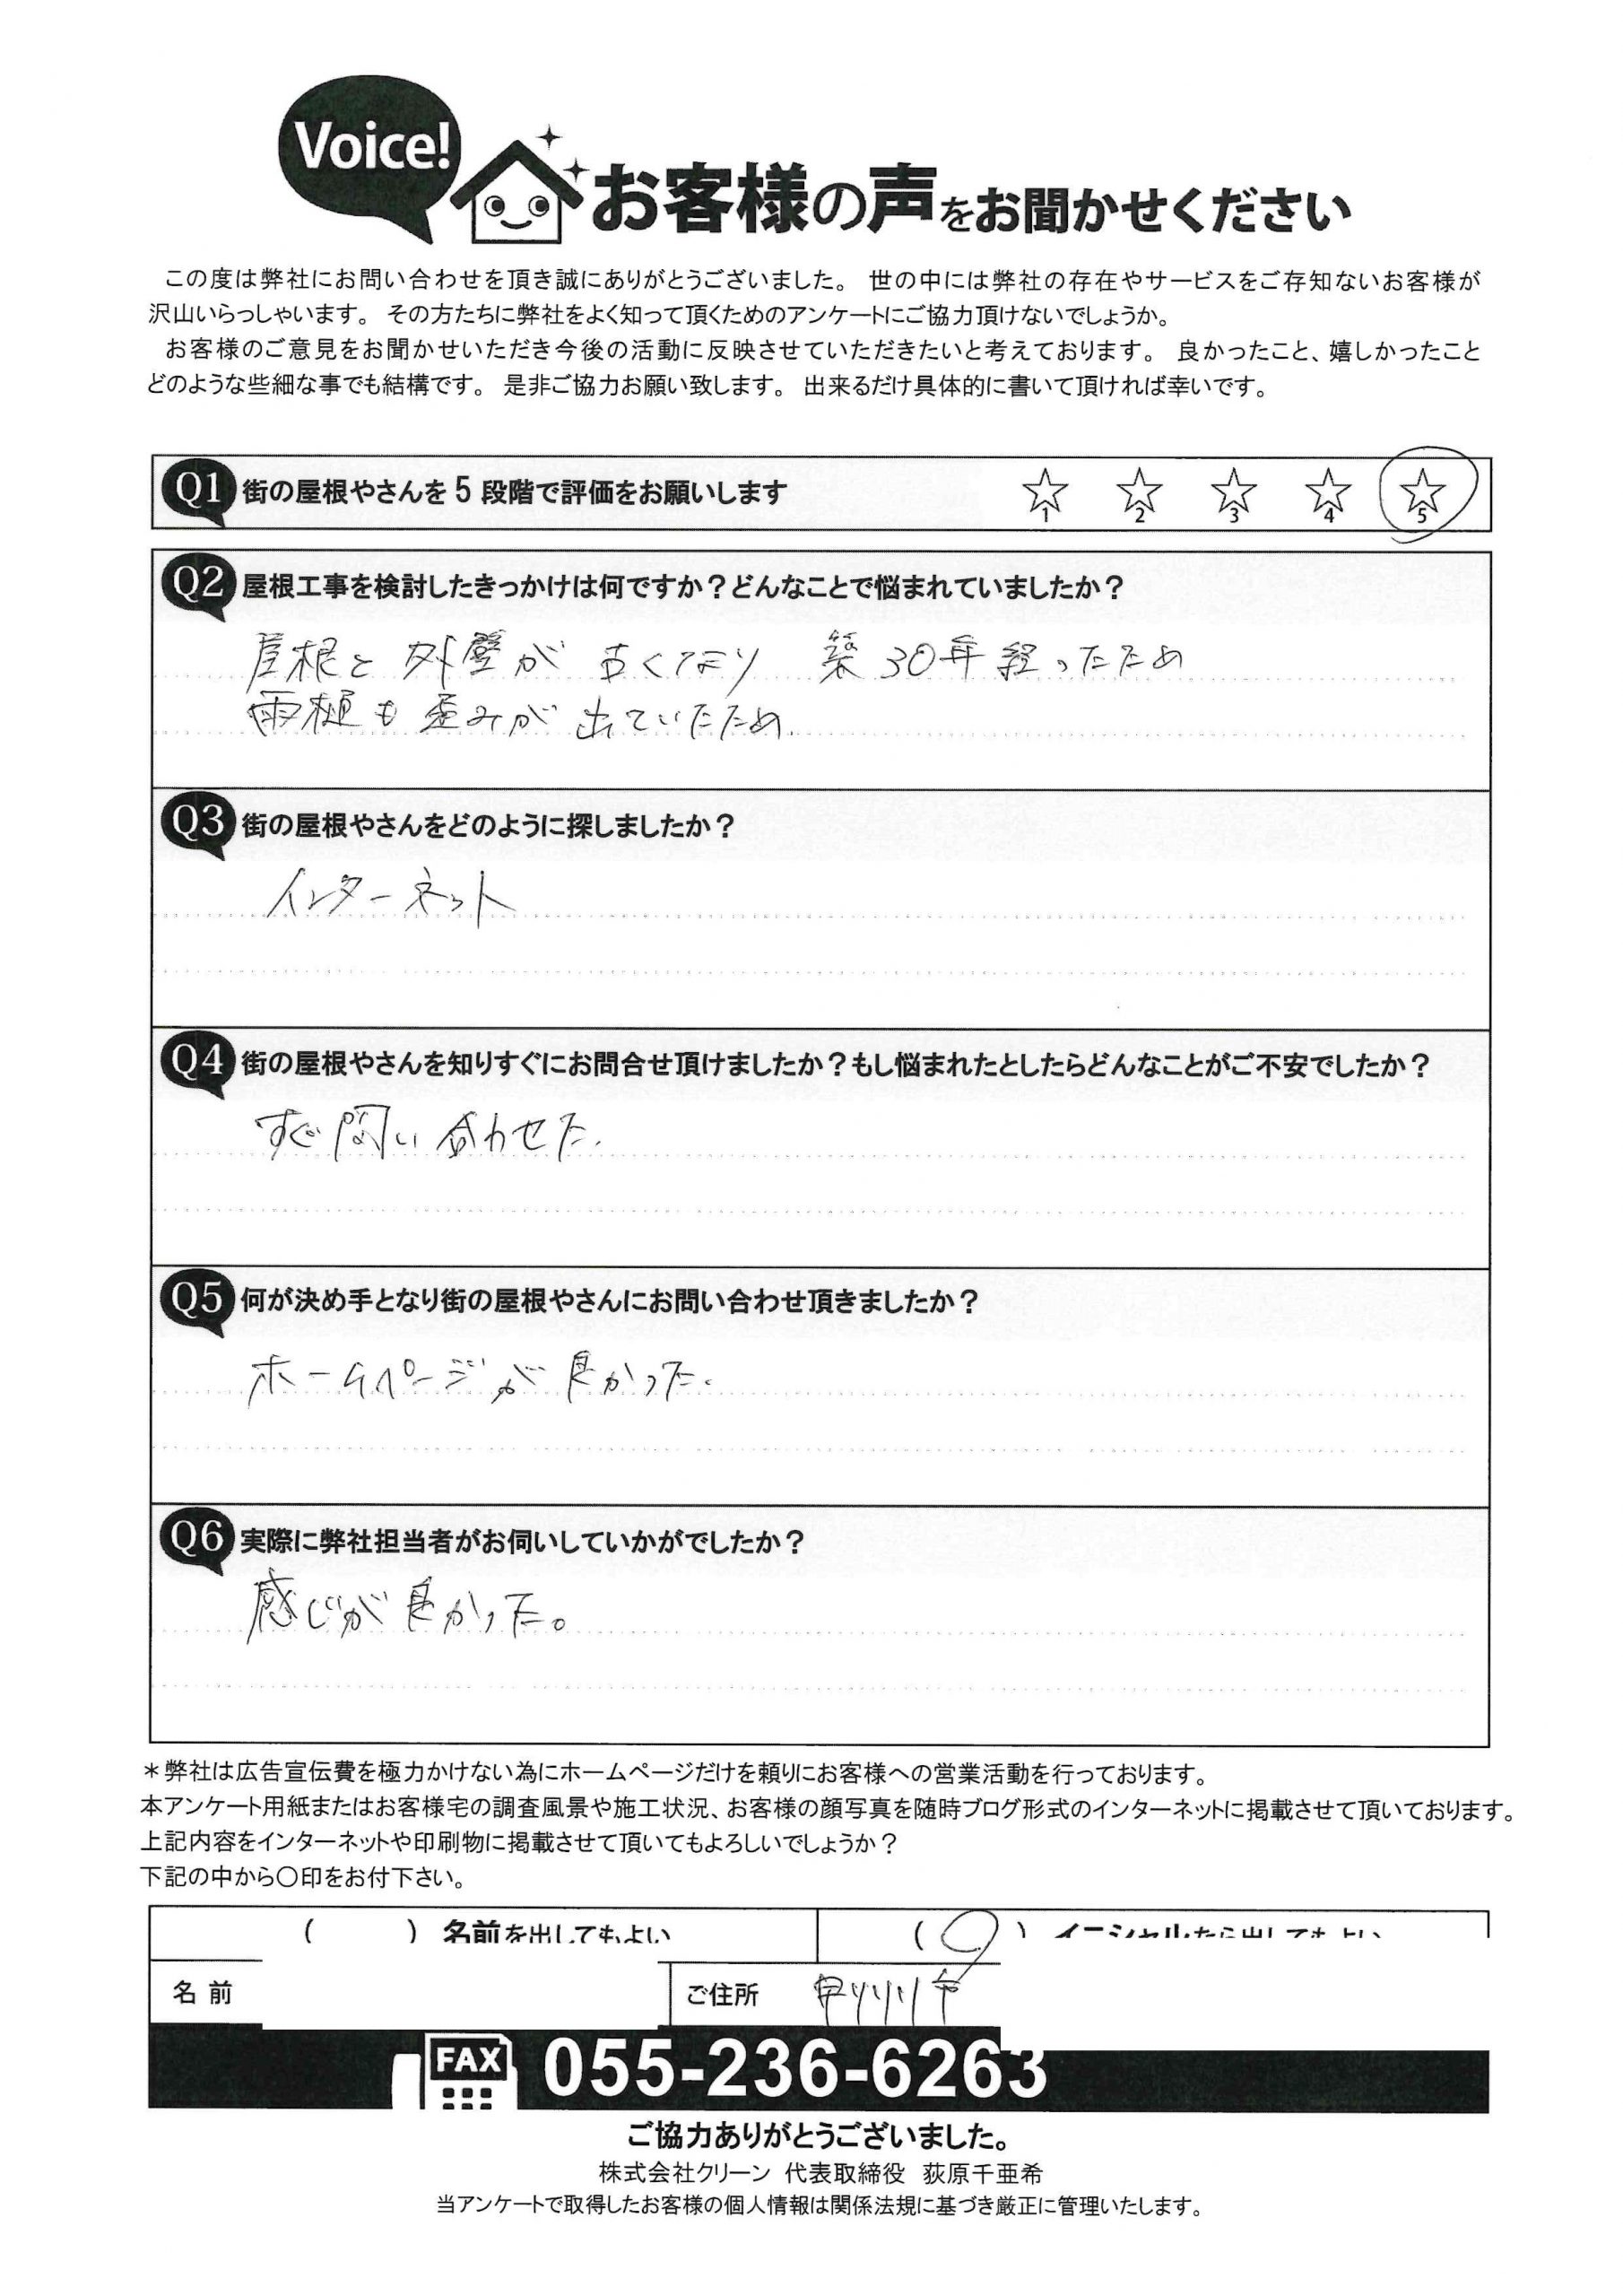 Voice!
お客様の声をお聞かせください
この度は弊社にお問い合わせを頂き誠にありがとうございました。 世の中には弊社の存在やサービスをご存知ないお客様が
沢山いらっしゃいます。 その方たちに弊社をよく知って頂くためのアンケートにご協力頂けないでしょうか。
お客様のご意見をお聞かせいただき今後の活動に反映させていただきたいと考えております。 良かったこと、嬉しかったこと
どのような些細な事でも結構です。 是非ご協力お願い致します。 出来るだけ具体的に書いて頂ければ幸いです。
Q1 街の屋根やさんを5段階で評価をお願いします ☆1 ☆2 ☆3 ☆4 ☆5
Q2 屋根工事を検討したきっかけは何ですか？どんなことで悩まれていましたか？
屋根と外壁が古くなり 築30年経ったため
雨樋も歪みが出ていたため.
Q3 街の屋根やさんをどのように探しましたか？
インターネット
Q4 街の屋根やさんを知りすぐにお問合せ頂けましたか？もし悩まれたとしたらどんなことがご不安でしたか？
すぐ問い合わせた.
Q5 何が決め手となり街の屋根やさんにお問い合わせ頂きましたか？
ホームページが良かった.
Q6 実際に弊社担当者がお伺いしていかがでしたか？
感じが良かった。
＊弊社は広告宣伝費を極力かけない為にホームページだけを頼りにお客様への営業活動を行っております。
本アンケート用紙またはお客様宅の調査風景や施工状況、お客様の顔写真を随時ブログ形式のインターネットに掲載させて頂いております。
上記内容をインターネットや印刷物に掲載させて頂いてもよろしいでしょうか？
下記の中から〇印をお付下さい。
（ ） 名前を出してもよい （〇） イニシャルなら出してもよい
名前 ご住所 甲州市
FAX 055-236-6263
ご協力ありがとうございました。
株式会社クリーン 代表取締役 荻原千亜希
当アンケートで取得したお客様の個人情報は関係法規に基づき厳正に管理いたします。